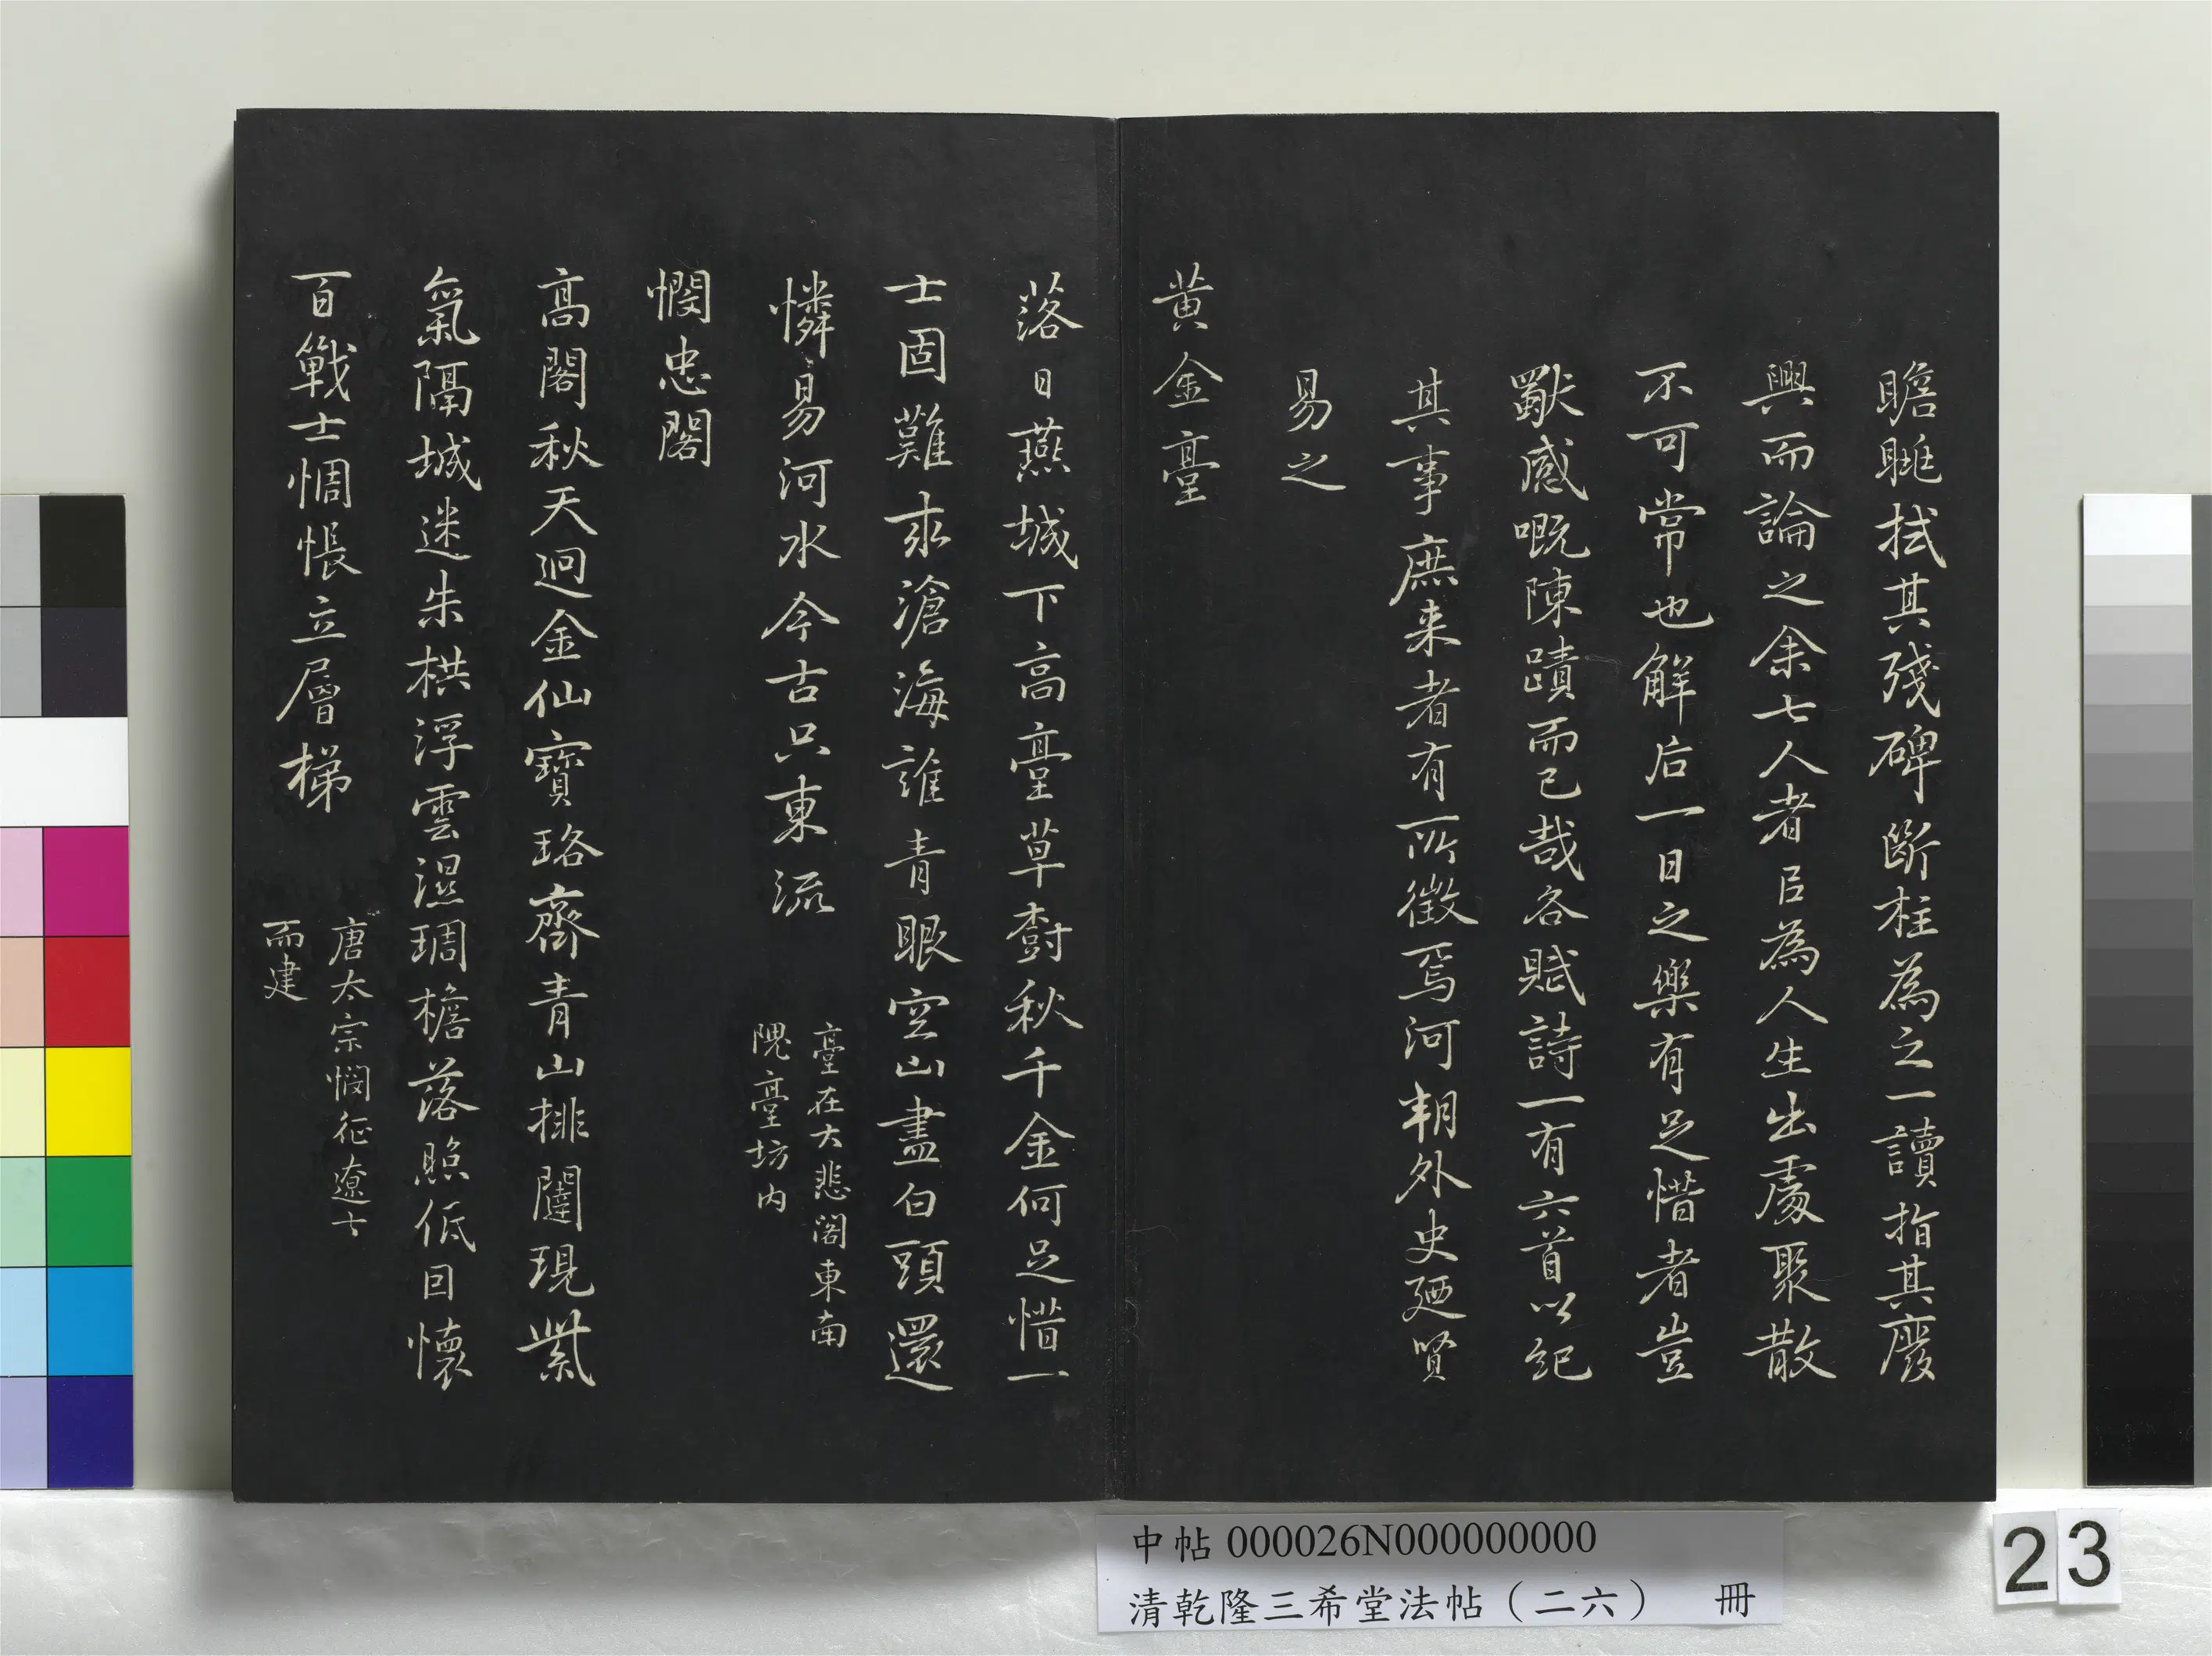 瞻眺拭其殘碑斷柱為之一讀指其廢
興而論之余七人者臣為人生出處聚散
不可常也解后一日之樂有足惜者豈
獸感嘅陳蹟而已哉各賦詩一有六首以紀
其事庶来者有所徵焉河朔外史廼賢
易之
黄金臺
落日燕城下高臺草樹秋千金何足惜一
士固難求滄海誰青眼空山盡白頭還
憐易河水今古只東流
臺在大悲閣東南
隗臺坊内
憫忠閣
高閣秋天迥金仙寶珞齊青山排闥現紫
氣隔城迷朱栱浮雲濕琱檐落照低回懷
百戰士惆悵立層梯
唐太宗憫征遼士
而建
中帖 000026N000000000
清乾隆三希堂法帖（二六） 冊
23